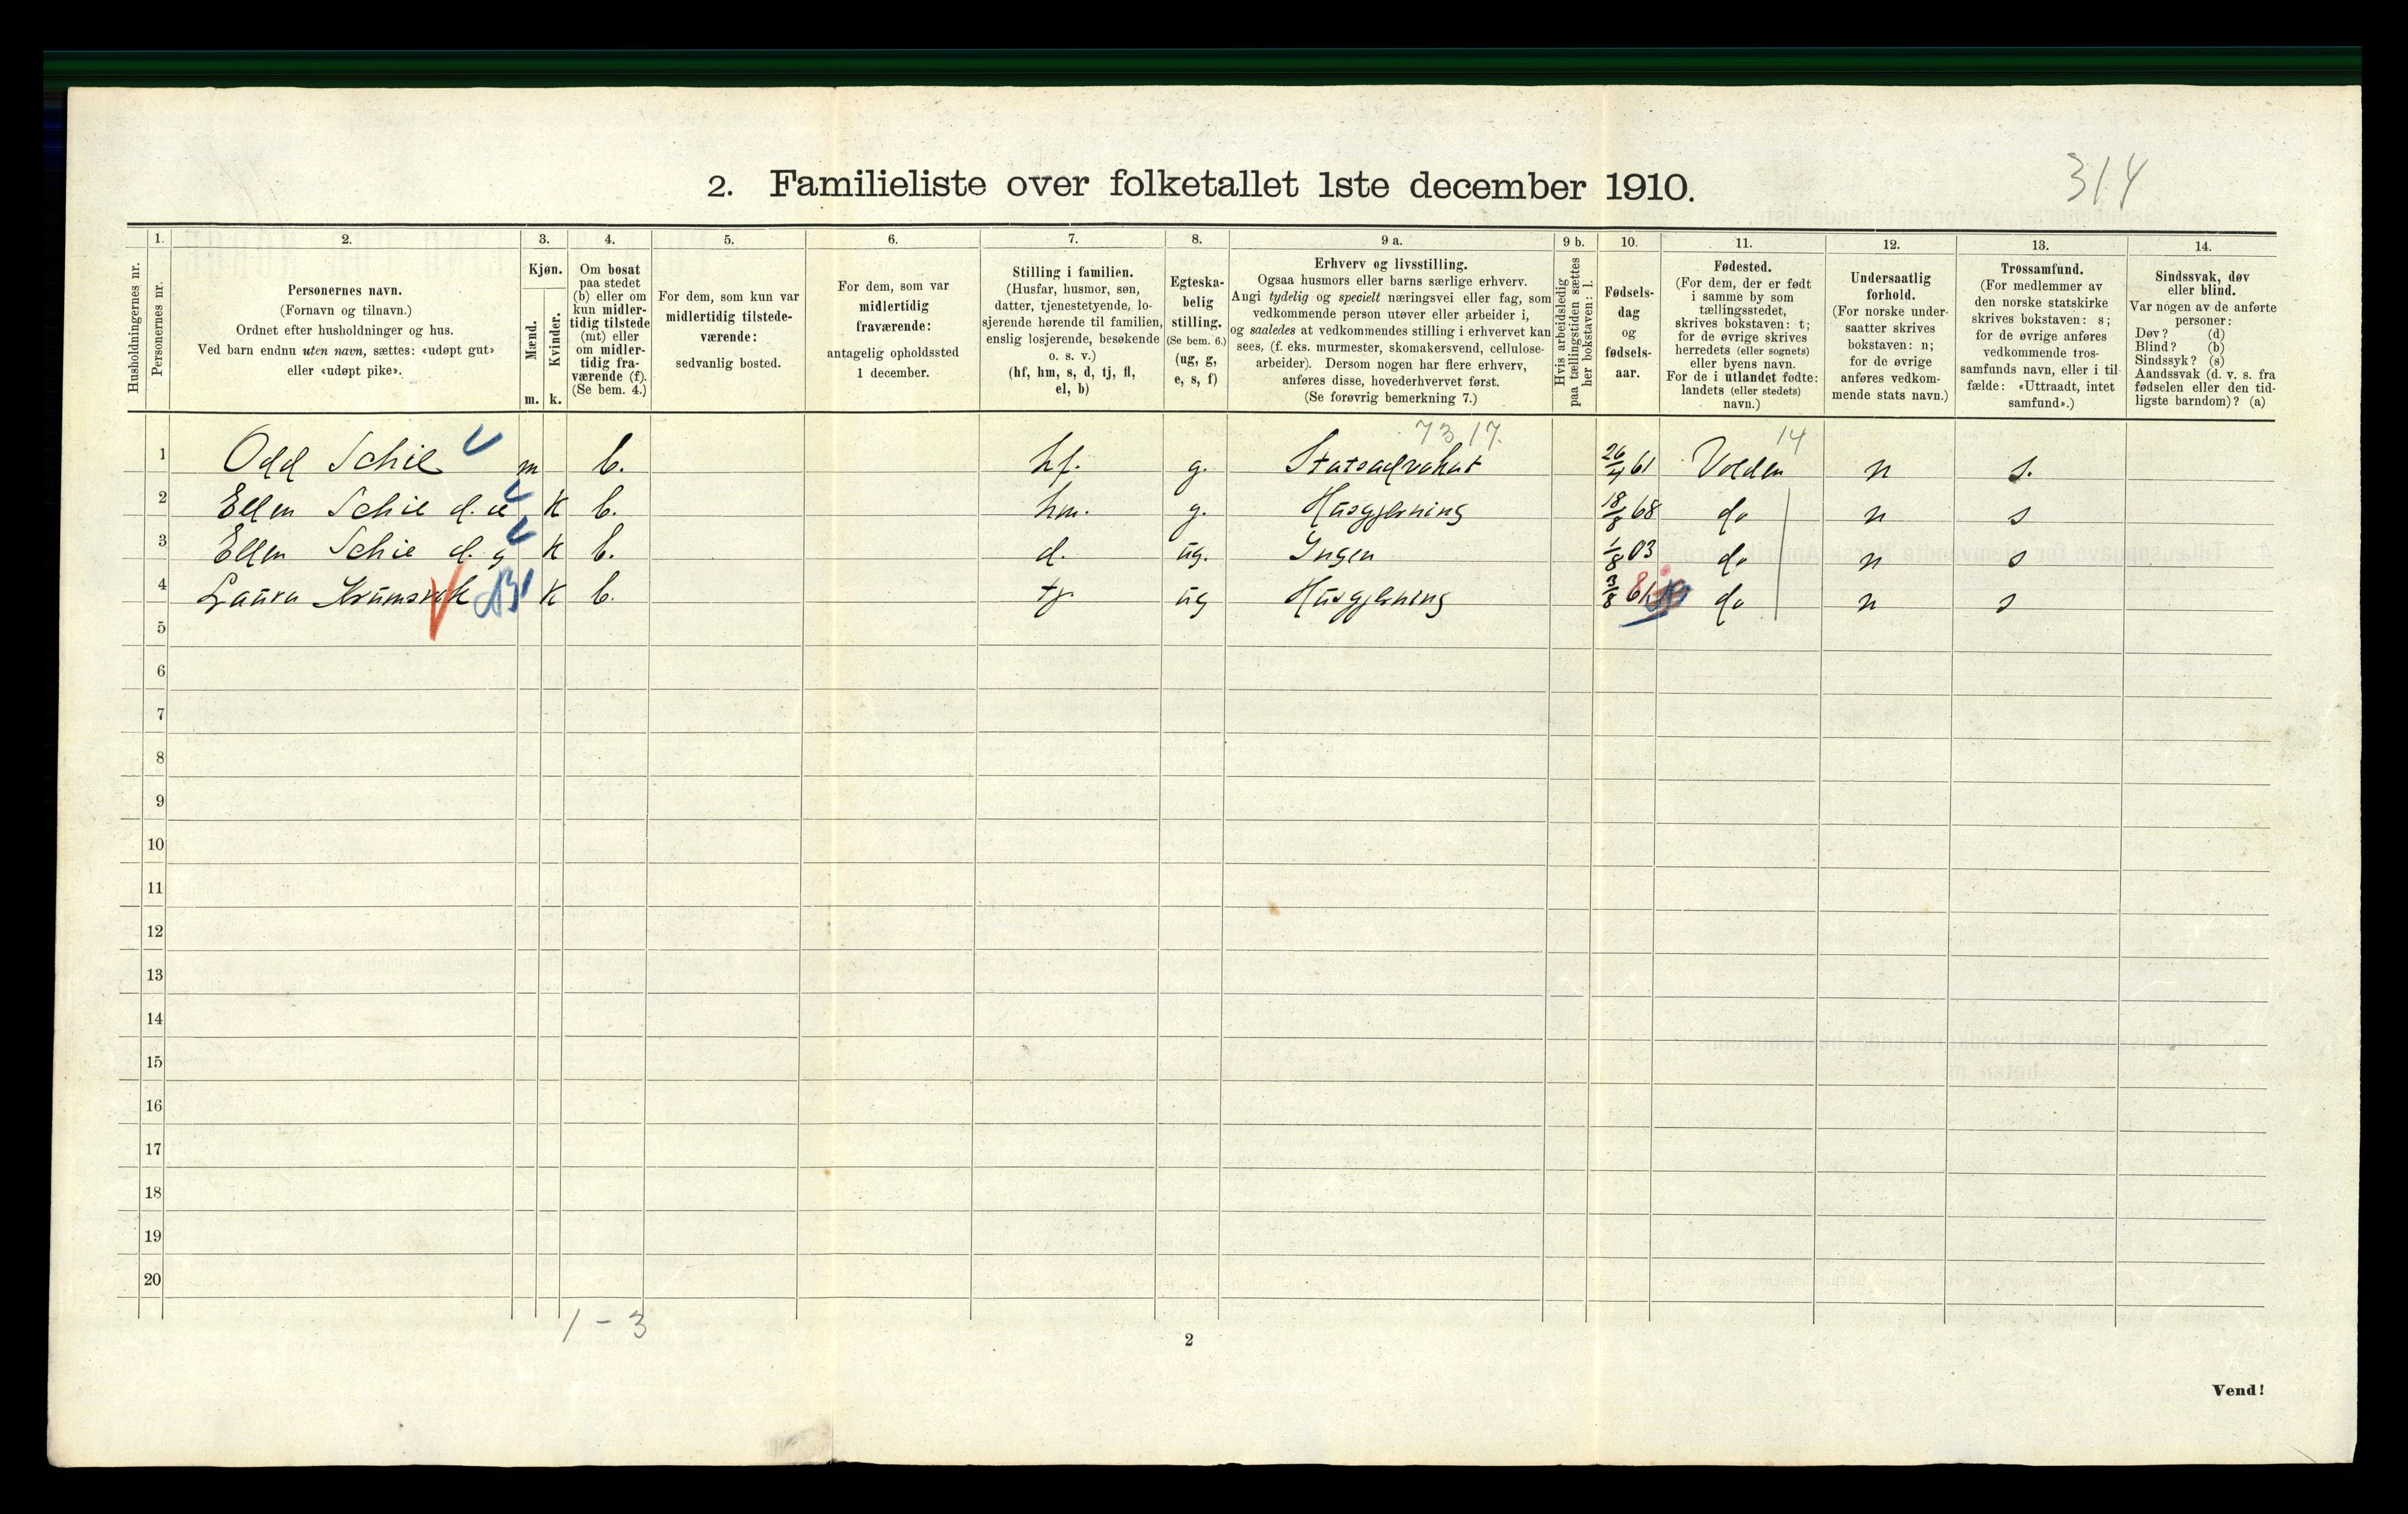 314
2. Familieliste over folketallet 1ste december 1910.
1. 2. 3. 4. 5. 6. 7. 8. 9 a. 9 b. 10. 11. 12. 13. 14.
Husholdningernes nr.
Personernes nr.
Personernes navn.
(Fornavn og tilnavn.)
Ordnet efter husholdninger og hus.
Ved barn endnu uten navn, sættes: «udøpt gut»
eller «udøpt pike».
Kjøn.
Mænd.
Kvinder.
m. k.
Om bosat
paa stedet
(b) eller om
kun midler-
tidig tilstede
(mt) eller
om midler-
tidig fra-
værende (f).
(Se bem. 4.)
For dem, som kun var
midlertidig tilstede-
værende:
sedvanlig bosted.
For dem, som var
midlertidig
fraværende:
antagelig opholdssted
1 december.
Stilling i familien.
(Husfar, husmor, søn,
datter, tjenestetyende, lo-
sjerende hørende til familien,
enslig losjerende, besøkende
o. s. v.)
(hf, hm, s, d, tj, fl,
el, b)
Egteska-
belig
stilling.
(Se bem. 6.)
(ug, g,
e, s, f)
Erhverv og livsstilling.
Ogsaa husmors eller barns særlige erhverv.
Angi tydelig og specielt næringsvei eller fag, som
vedkommende person utøver eller arbeider i,
og saaledes at vedkommendes stilling i erhvervet kan
sees, (f. eks. murmester, skomakersvend, cellulose-
arbeider). Dersom nogen har flere erhverv,
anføres disse, hovederhvervet først.
(Se forøvrig bemerkning 7.)
Hvis arbeidsledig
paa tællingstiden sættes
her bokstaven: l.
Fødsels-
dag
og
fødsels-
aar.
Fødested.
(For dem, der er født
i samme by som
tællingsstedet,
skrives bokstaven: t;
for de øvrige skrives
herredets (eller sognets)
eller byens navn.
For de i utlandet fødte:
landets (eller stedets)
navn.)
Undersaatlig
forhold.
(For norske under-
saatter skrives
bokstaven: n;
for de øvrige
anføres vedkom-
mende stats navn.)
Trossamfund.
(For medlemmer av
den norske statskirke
skrives bokstaven: s;
for de øvrige anføres
vedkommende tros-
samfunds navn, eller i til-
fælde: «Uttraadt, intet
samfund».)
Sindssvak, døv
eller blind.
Var nogen av de anførte
personer:
Døv? (d)
Blind? (b)
Sindssyk? (s)
Aandssvak (d. v. s. fra
fødselen eller den tid-
ligste barndom)? (a)
7317. 14
1 Odd Schie m b. hf. g. Statsadvokat 26/4 61 Volden n s.
2 Ellen Schie d. e k b. hm. g. Husgjerning 18/8 68 do n s
3 Ellen Schie d. y k b. d. ug. Ingen 1/8 03 do n s
4 Laura Krumsvik k b. tj. ug Husgjerning 3/8 81 do n s
5
6
7
8
9
10
11
12
13
14
15
16
17
18
19
20
1 - 3
2
Vend!